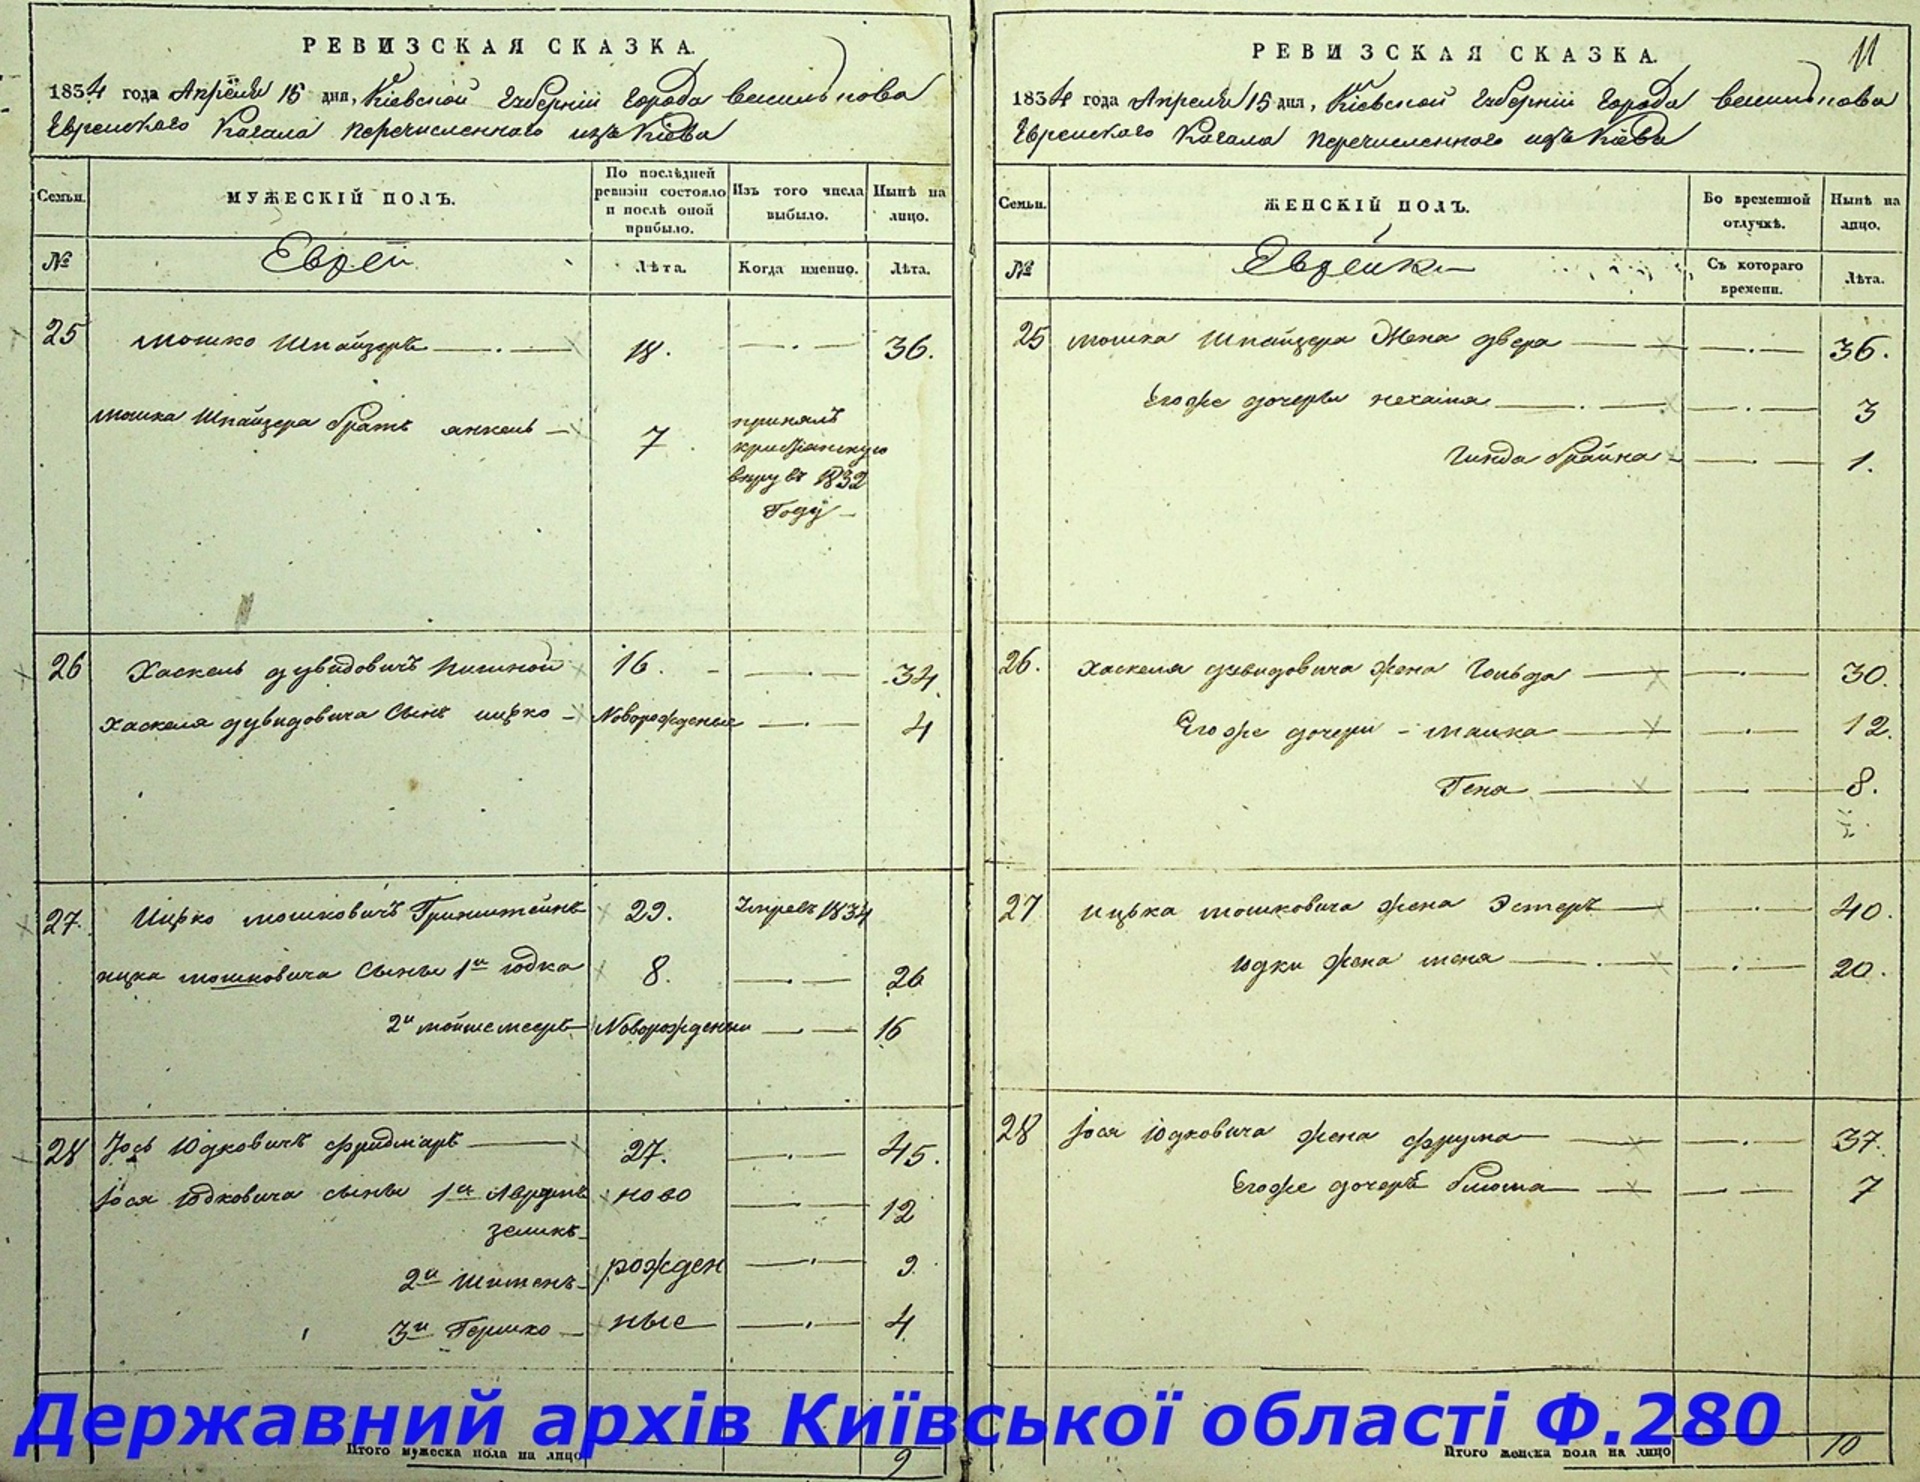 РЕВИЗСКАЯ СКАЗКА.
1834 года Апреля 15 дня, Кіевской Губерніи Города Василькова
Еврейского Кагала перечисленного изъ Кіева
Семьи.
МУЖЕСКІЙ ПОЛЪ.
По послѣдней ревизіи состояло и послѣ оной прибыло.
Изъ того числа выбыло.
Нынѣ на лицо.
№
Евреи
Лѣта.
Когда именно.
Лѣта.
25 Мошко Шпайзеръ 18. 36.
Мошка Шпайзера братъ Янкель 7 принялъ
християнскую
веру въ 1832
Году
26 Хаскель Дувидовичъ 16. 34
Хаскеля Дувидовича сынъ Ицко Новорожденные 4
27. Ицко Мошковичъ Гринштейнъ 29. Умре въ 1834
Ицка Мошковича сыны 1й Юдка 8. 26
2й Мойше Мееръ Новорожденны 16
28 Іось Юдковичъ 27. 45.
Іося Юдковича сыны 1й ново 12
Зеликъ
2й рожден 9
3й Гершко ные 4
Итого мужеска пола на лицо 9
РЕВИЗСКАЯ СКАЗКА. 11
1834 года Апреля 15 дня, Кіевской Губерніи Города Василькова
Еврейского Кагала перечисленного изъ Кіева
Семьи.
ЖЕНСКІЙ ПОЛЪ.
Во временной отлучкѣ.
Нынѣ на лицо.
№
Еврейки
Съ котораго времени.
Лѣта.
25 Мошка Шпайзера Жена Двера 36.
Егоже дочеры Нехама 3
Гинда Брайна 1.
26. Хаскеля Дувидовича жена Гольда 30.
Егоже дочери 12.
Гена 8.
27 Ицька Мошковича жена Эстеръ 40.
Юдки жена 20.
28 Іося Юдковича жена Фрума 37.
Егоже дочерь Блюма 7
Итого женска пола на лицо 10
Державний архів Київської області Ф.280